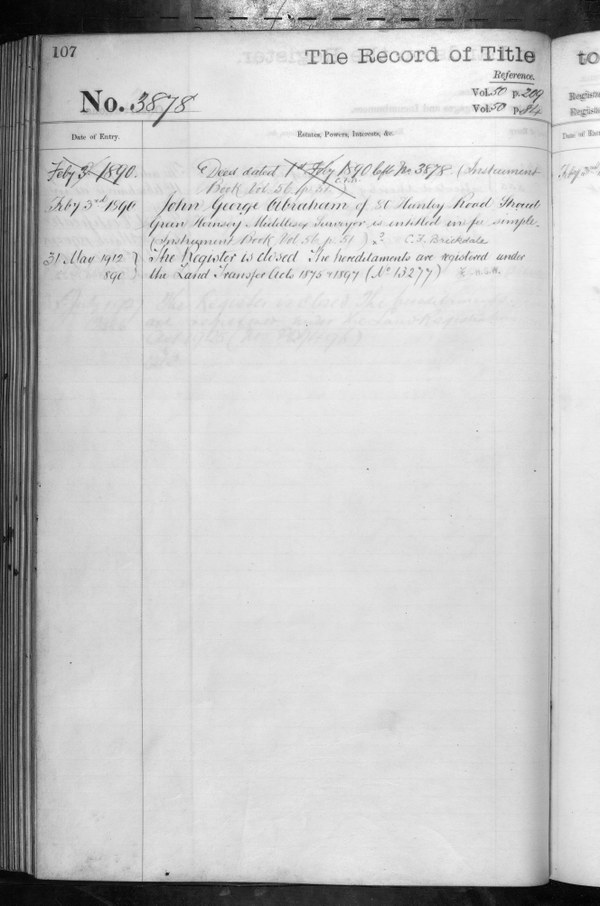 107
The Record of Title
Reference.
No. 3878
Vol. 50 p. 209
Vol. 50 p. 84
Date of Entry.
Estates, Powers, Interests, &c.
Feby 3 1890.
Deed dated 1st Feby 1890 left No. 3878 (Instrument
Book Vol. 56. p. 51.)
Feby 3rd 1890
John George Abraham of 80 Hanley Road Stroud
Green Hornsey Middlesex Surveyor is entitled in fee simple.
(Instrument Book Vol 56 p. 51) C. F. Brickdale
31 May 1912
890
The Register is closed The hereditaments are registered under
the Land Transfer Acts 1875 & 1897 (No 13277)
to
Registe
Registe
Date of Ent
Feby 3rd